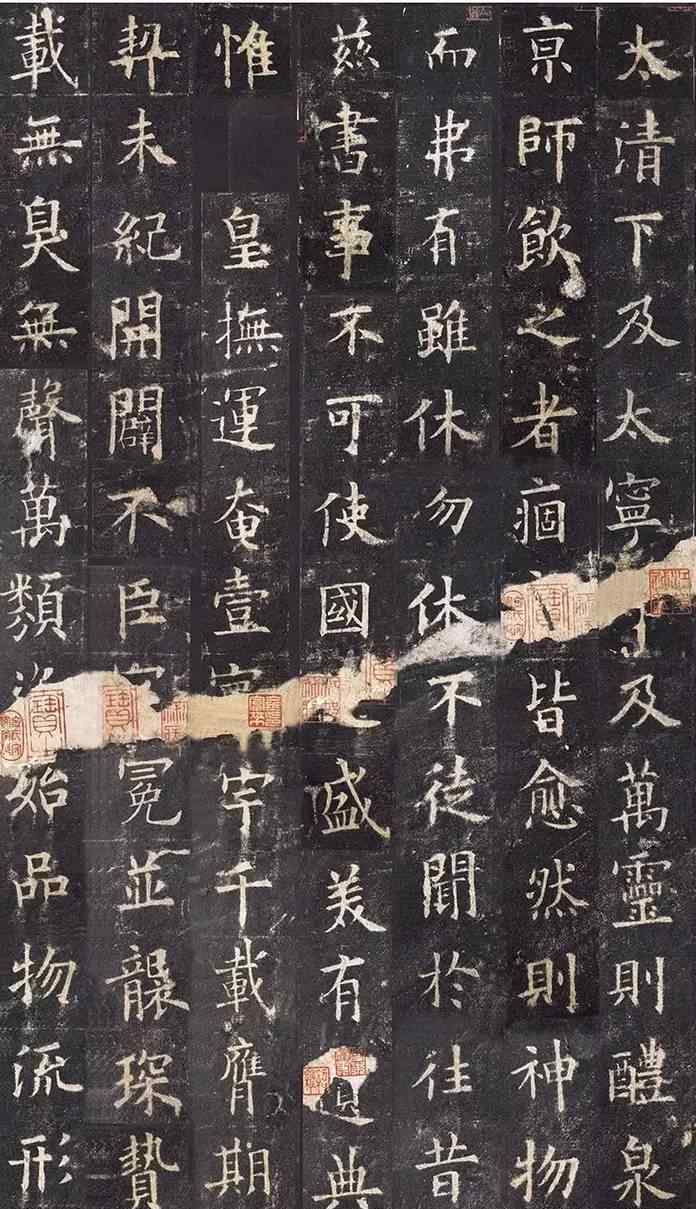 太清下及太寧及萬靈則醴泉
亰師飲之者痼皆愈然則神物
而弗有雖休勿休不徒聞於往昔
茲書事不可使國盛美有典
惟 皇撫運奄壹宇千載膺期
契未紀開闢不臣冕並襲琛贄
載無臭無聲萬類始品物流形